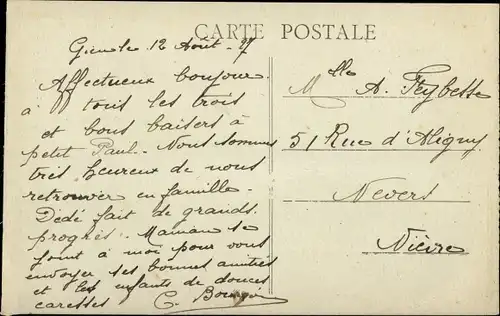 CARTE POSTALE
Gien le 12 Août 27
Affectueux bonjour
à tous les trois
et bons baisers à
petit Paul - Nous sommes
très heureux de nous
retrouver en famille -
Dedé fait de grands
progrès. Maman se
joint à moi pour vous
envoyer ses bonnes amitiés
et les enfants de douces
caresses
Mlle A.
51 Rue d'Aligny
Nevers
Nièvre